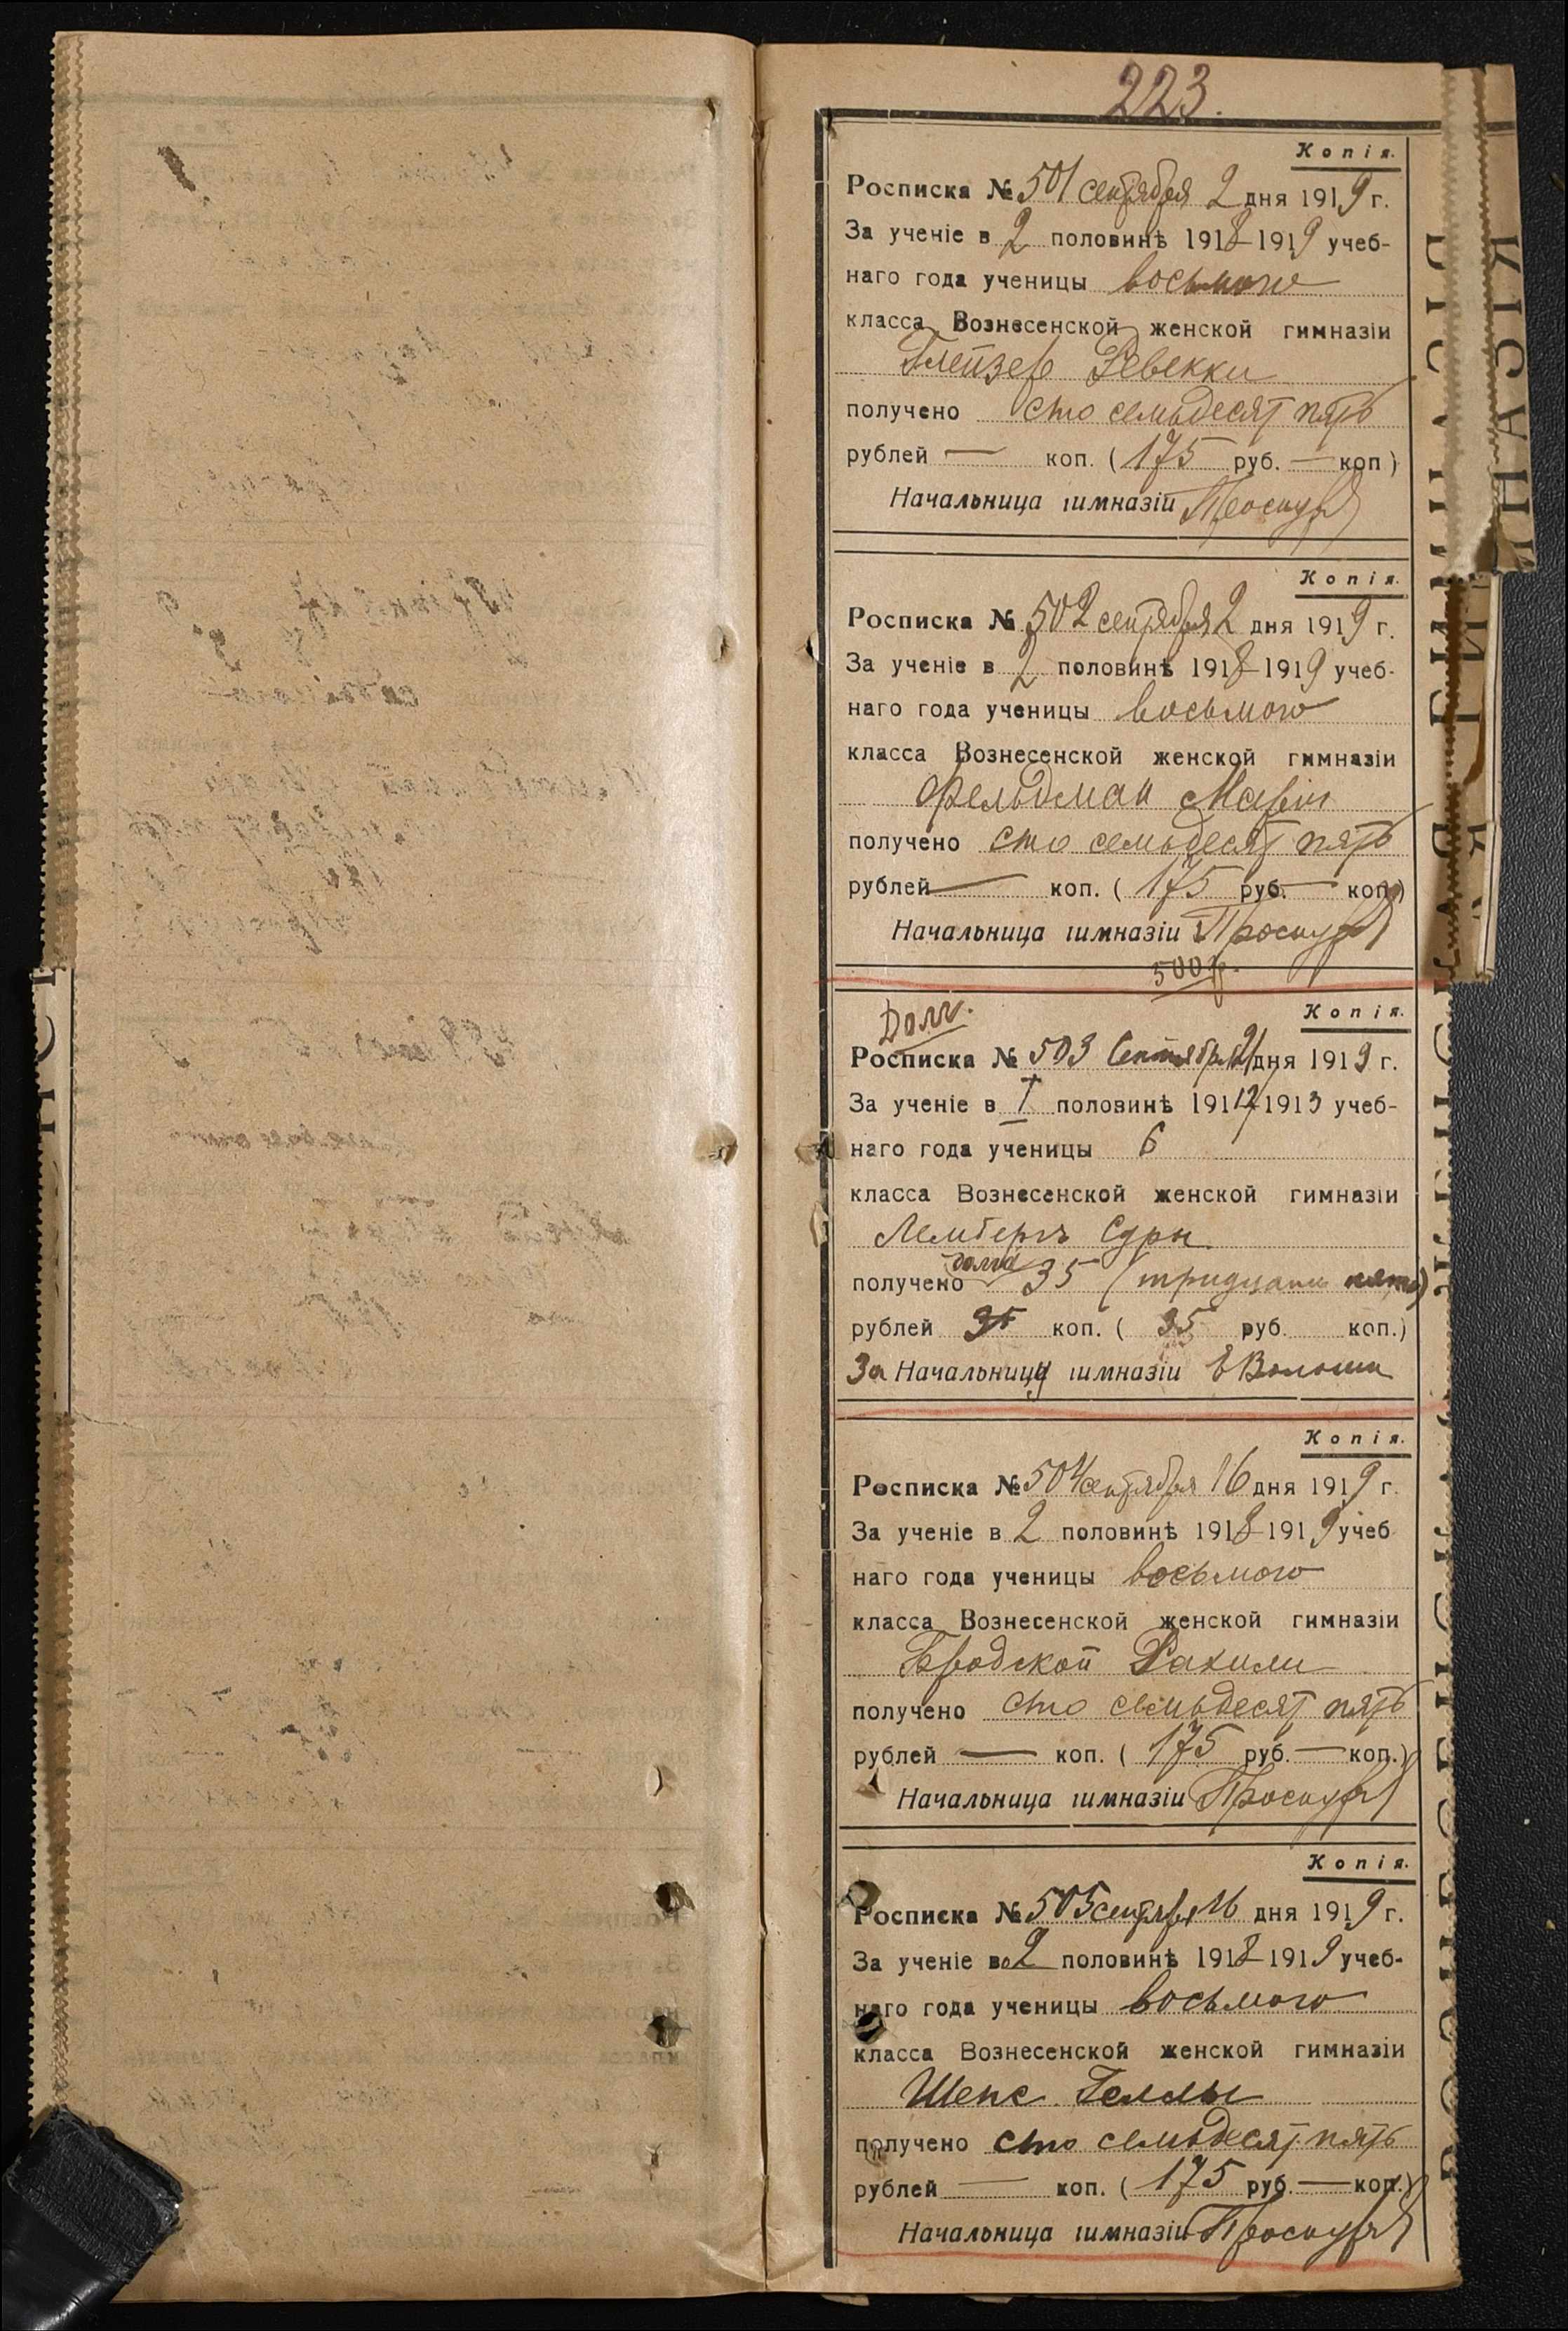 223.
Копія.
Росписка № 501 сентября 2 дня 1919 г.
За ученіе в 2 половинѣ 1918-1919 учеб-
наго года ученицы восьмого
класса Вознесенской женской гимназіи
Глейзер Ревекки
получено сто семьдесят пять
рублей — коп. (175 руб. — коп)
Начальница гимназіи
Копія.
Росписка № 502 сентября 2 дня 1919 г.
За ученіе в 2 половинѣ 1918-1919 учеб-
наго года ученицы восьмого
класса Вознесенской женской гимназіи
Фельдман Марии
получено сто семьдесят пять
рублей — коп. (175 руб. — коп)
Начальница гимназіи
500 р.
Долг.
Копія.
Росписка № 503 Сентября дня 1919 г.
За ученіе в I половинѣ 1912/1913 учеб-
наго года ученицы 6
класса Вознесенской женской гимназіи
Лембергъ Суры
долга
получено 35 (тридцать пять)
рублей коп. (35 руб. коп.)
За Начальницу гимназіи
Копія.
Росписка № 504 сентября 16 дня 1919 г.
За ученіе в 2 половинѣ 1918-1919 учеб
наго года ученицы восьмого
класса Вознесенской женской гимназіи
Бродской Рахили
получено сто семьдесят пять
рублей — коп. (175 руб. — коп.)
Начальница гимназіи
Копія.
Росписка № 505 сентября 16 дня 1919 г.
За ученіе во 2 половинѣ 1918-1919 учеб-
наго года ученицы восьмого
класса Вознесенской женской гимназіи
Шепс Геллы
получено сто семьдесят пять
рублей — коп. (175 руб. — коп.)
Начальница гимназіи